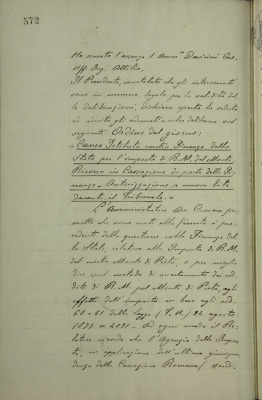 572
Ha scusato l'assenza l'Amm.re Davicini Cav.
Uff. Ing. Attilio.
Il Presidente, constatato che gli intervenuti
sono in numero legale per la validità del
le deliberazioni, dichiara aperta la seduta
ed invita gli adunati a voler deliberare sul
seguente Ordine del giorno:
Causa Istituto contro Finanze dello
Stato per l'imposta di R.M. del Monte.
Ricorso in Cassazione da parte delle Fi
nanze - Autorizzazione a
davanti il Tribunale.
L'Amministratore Avv.
mette che sono note alla
cedenti della questione colle Finanze del
lo Stato, relativa alla Imposta di R.M.
del nostro Monte di Pietà, e per meglio
dire sul metodo di accertamento dei red
diti di R.M. pel Monte di Pietà, agli
effetti dell'imposta in base agli art.
60-61 della legge (T.U.) 24 agosto
1877 n° 4021 - Ad ogni modo il Re
latore ricorda che l'Agenzia delle Impos
te, in applicazione dell'ultima giurispru
denza della Cassazione Romana